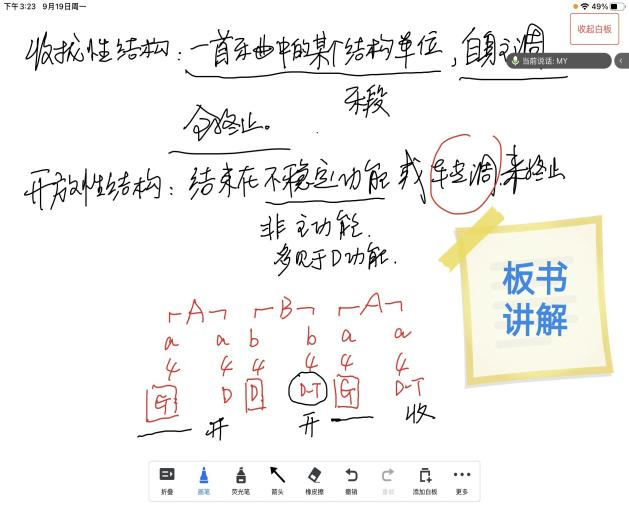 下午3:23 9月19日周一
49%
收起白板
当前说话: MY
收拢性结构：一首乐曲中的某个结构单位，自身主调
乐段
全终止。
开放性结构：结束在不稳定功能或转调来终止
非主功能.
多见于D功能.
板书
讲解
A B A
a a b b a a
4 4 4 4 4 4
D D D-T D-T
开 开 收
折叠
画笔
荧光笔
箭头
橡皮擦
撤销
重做
添加白板
更多